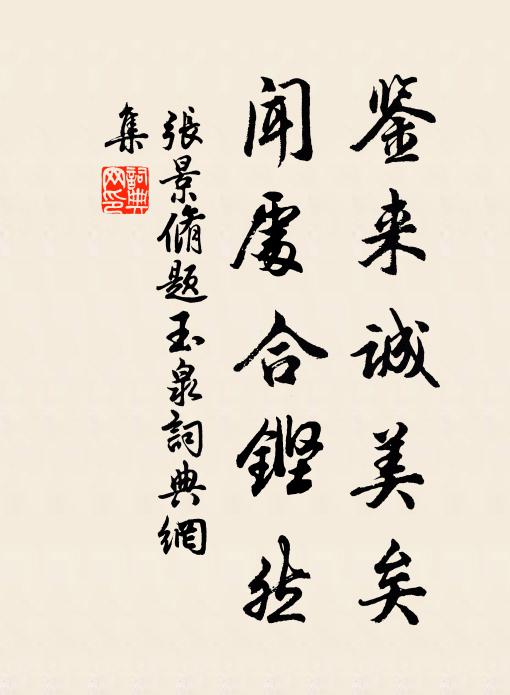 鉴来诚美矣
闻处合铿然
張景脩题玉泉詞典網
集
詞典
网印